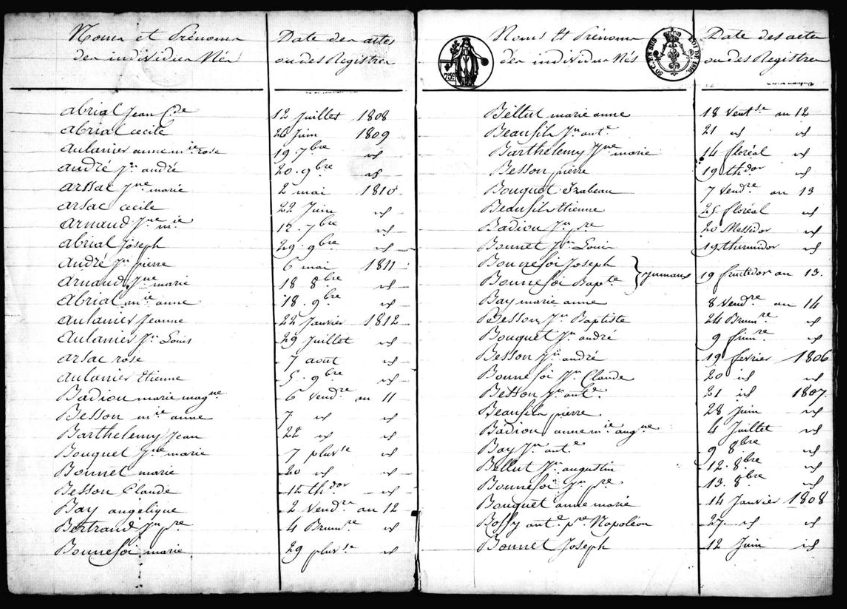 Noms et Prénoms
des individus Nés
Date des actes
ou des Registres
abrial Jean C.de 12 Juillet 1808
abrial cecile 26 Juin 1809
aulanier anne m.ie rose 19 7bre id
andré J.n andré 20 9bre id
arsac J.ne marie 2 mai 1810
arsac cecile 22 Juin id
arnaud J.ne m.ie 12 7bre id
abrial Joseph 29 9bre id
andré J.n pierre 6 mai 1811
arnaud J.ne marie 18 8bre id
abrial m.ie anne 18 9bre id
aulanier Jeanne 22 Janvier 1812
aulanier J.n Louis 29 Juillet id
arsac rose 7 aout id
aulanier Etienne 5 9bre id
Badiou marie mag.ne 6 vend.re an 11
Besson m.ie anne 7 id id
Barthelemy Jean 22 id id
Bouquet J.ne marie 7 pluv.se id
Bonnet marie 20 id id
Besson Claude 12 th.dor id
Bay angélique 2 Vend.re an 12
Bertrand J.n p.re 4 Brum.re id
Bonnefoi marie 29 pluv.se id
Noms Et Prénoms
des individus Nés
Date des actes
ou des Registres
Bellut marie anne 18 Vent.se an 12
Beaufils J.n ant.e 21 id id
Barthelemy J.ne marie 14 floréal id
Besson pierre 19 th.dor id
Bouquet Izabeau 7 Vend.re an 13
Beaufils Etienne 25 floréal id
Badiou J.n p.re 20 Messidor id
Bonnet J.n Louis 19 thermidor id
Bonnefoi Joseph
Bonnefoi Bap.te } Jumeaux 19 fructidor an 13.
Bay marie anne 8 Vend.re an 14
Besson J.n Baptiste 24 Brum.re id
Bouquet J.n andré 9 frim.re id
Besson J.n andré 19 fevrier 1806
Bonnefoi J.n Claude 20 id id
Besson J.n ant.e 21 id 1807
Beaufils pierre 28 Juin id
Badiou anne m.ie aug.ne 4 Juillet id
Bay J.n ant.e 9 8bre id
Bellut J.n augustin 12 8bre id
Bonnefoi J.n p.re 13 8bre id
Bouquet anne marie 14 Janvier 1808
Boffy ant.e p.re Napoléon 27 id id
Bonnet Joseph 12 Juin id